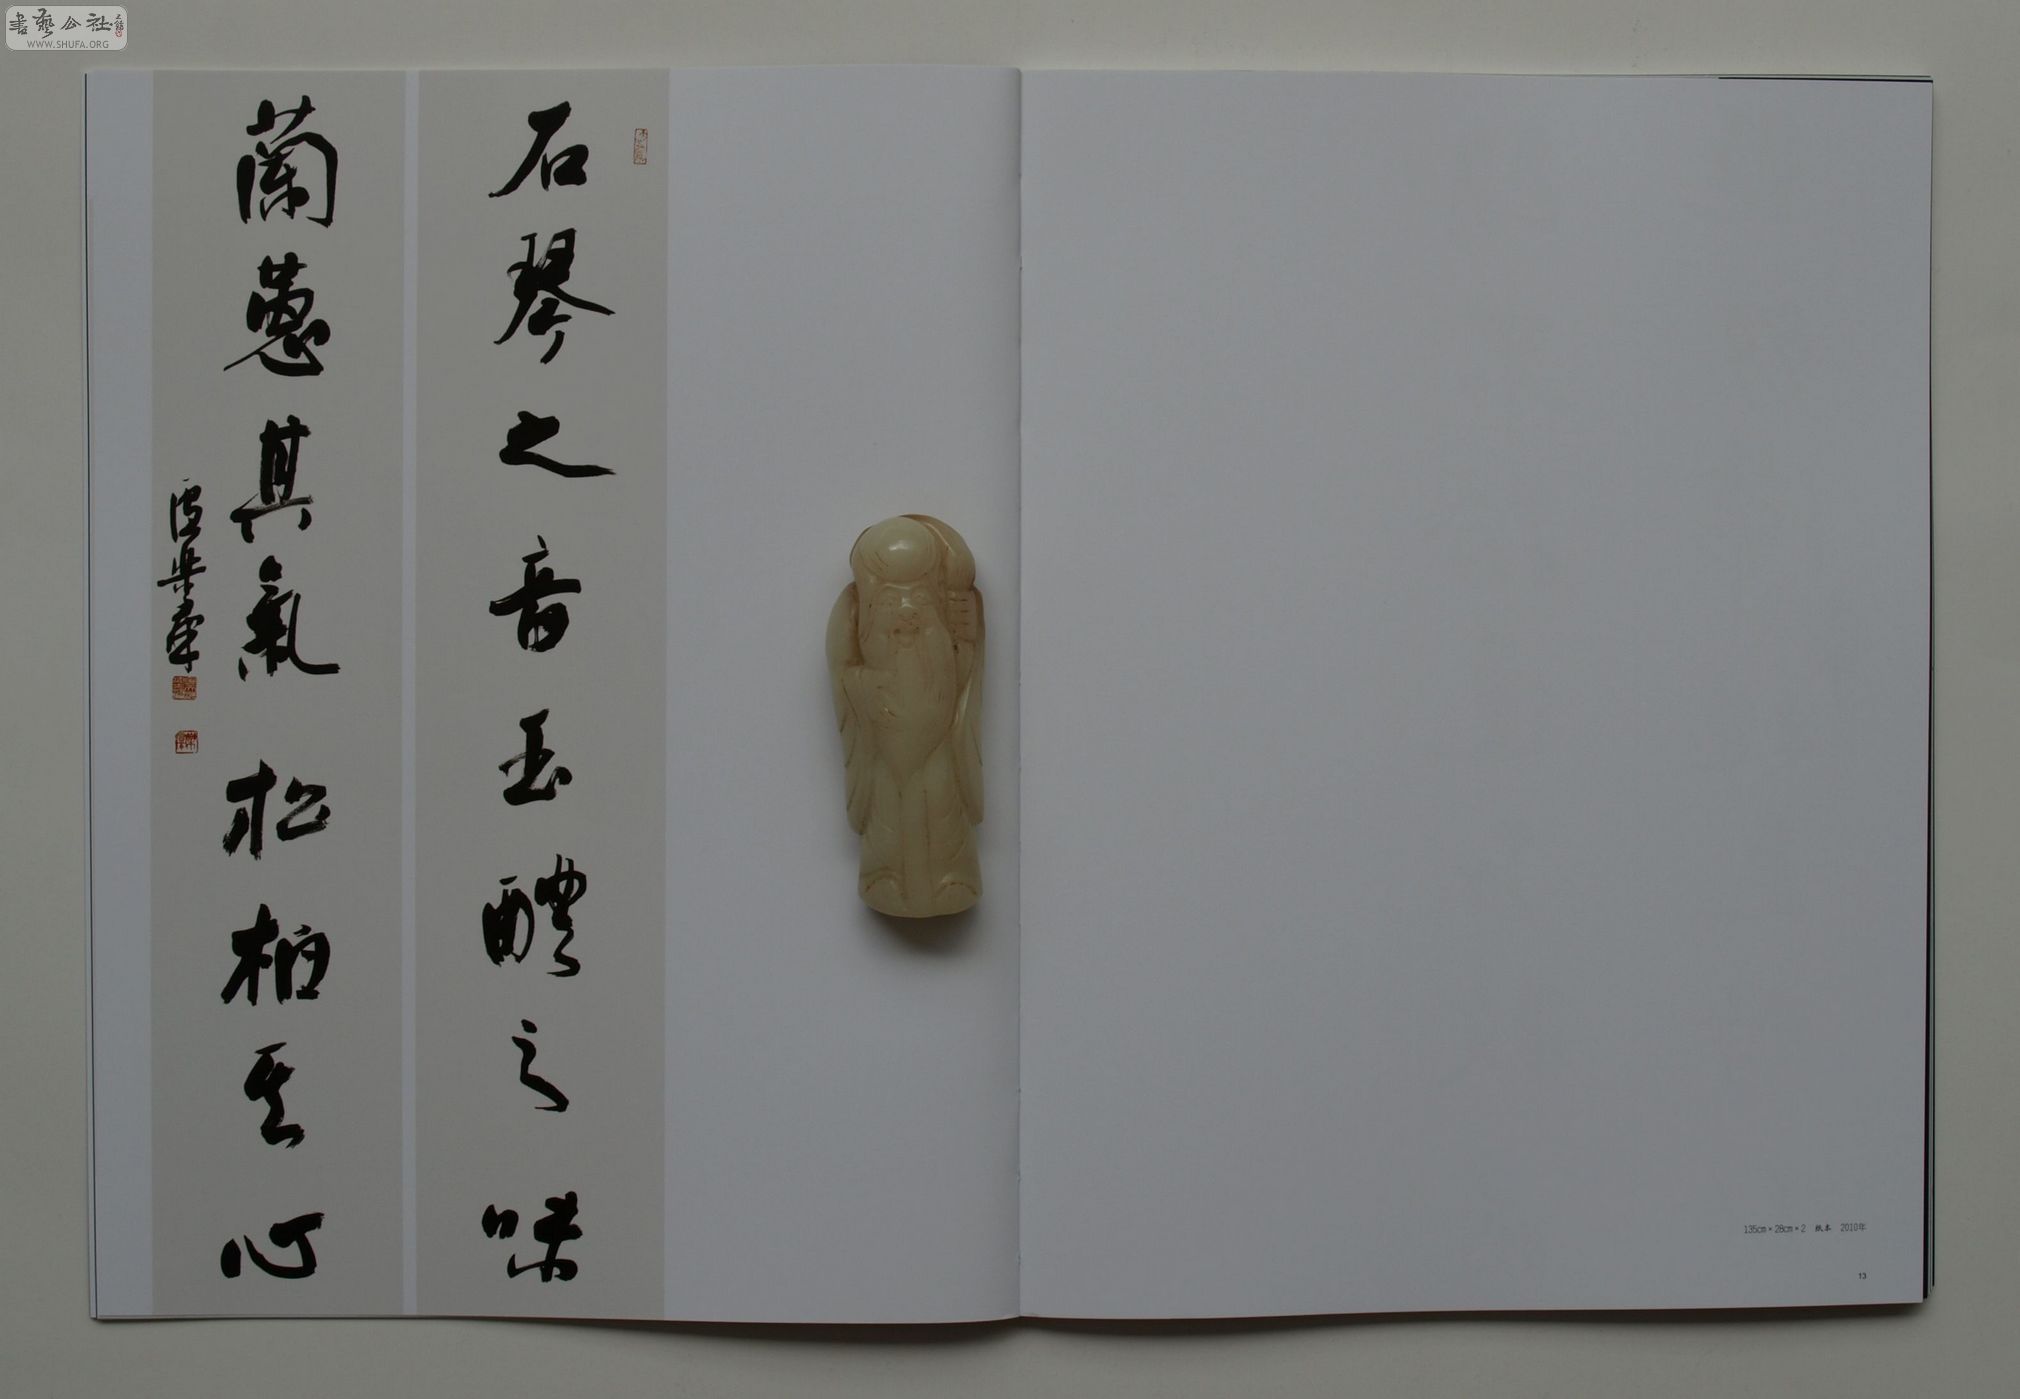 書藝公社
WWW.SHUFA.ORG
石琴之音玉醴之味
蘭蕙其氣松柏其心
135cm×28cm×2 纸本 2010年
13